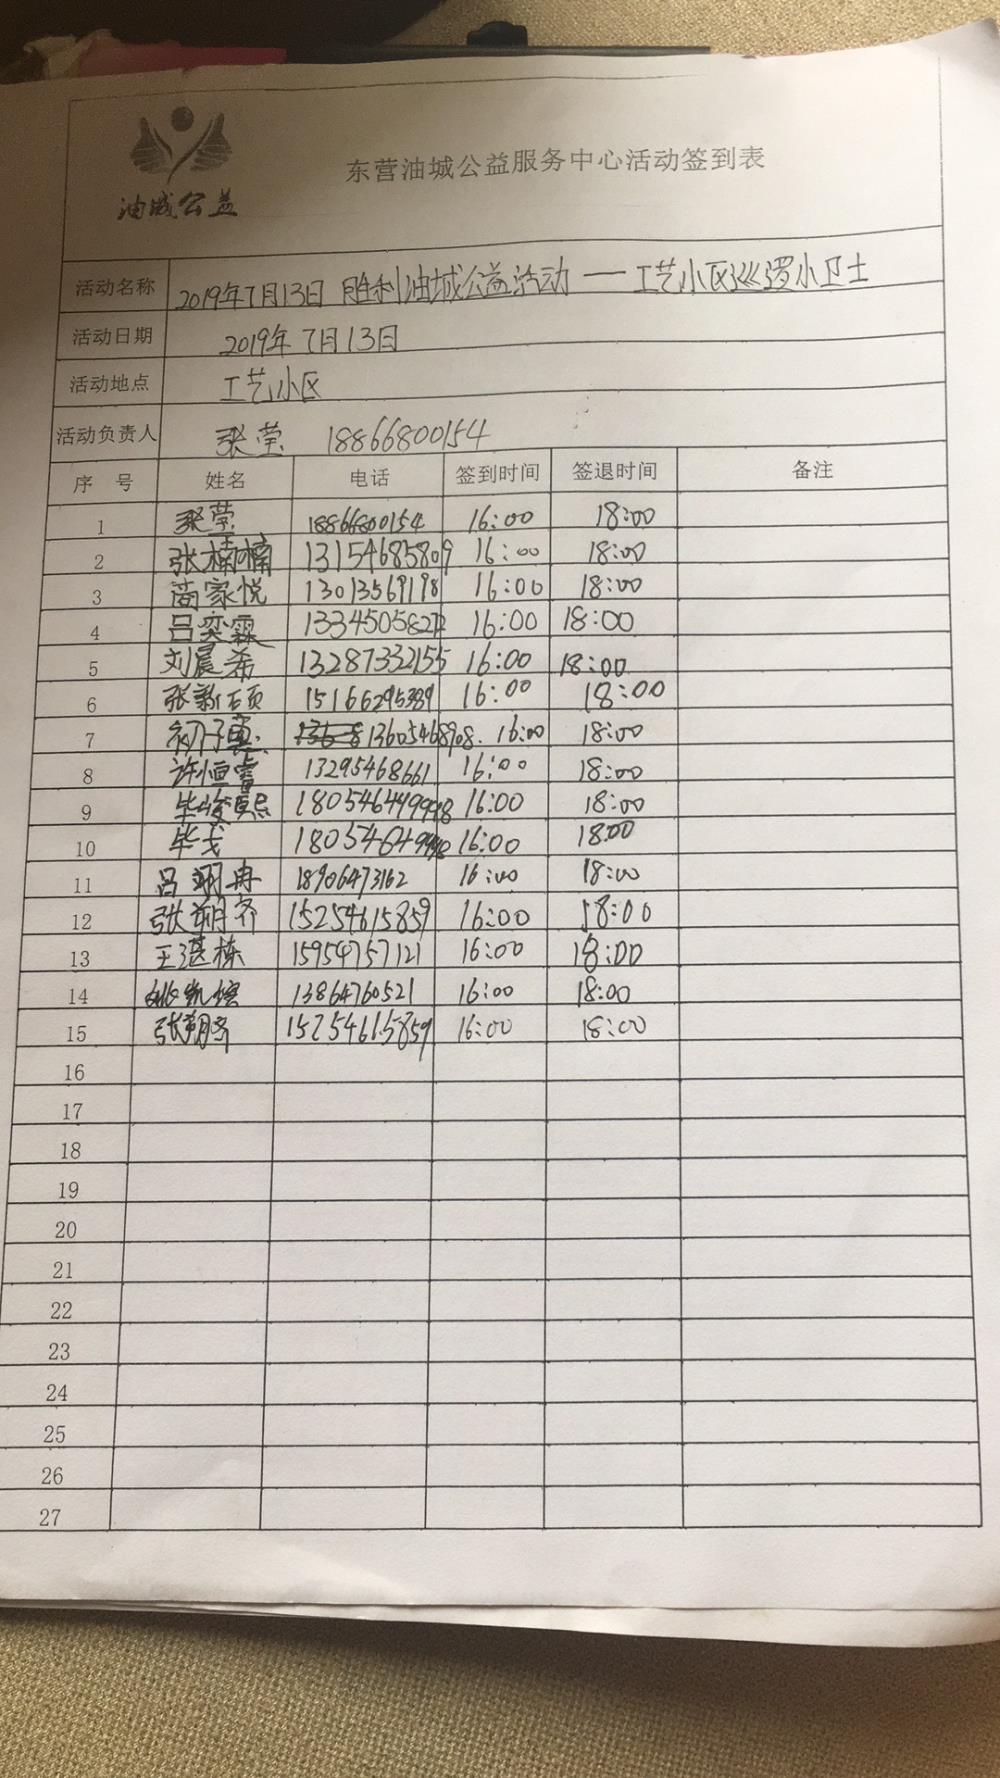 油城公益
东营油城公益服务中心活动签到表
活动名称 2019年7月13日 胜利油城公益活动 — 工艺小区巡逻小卫士
活动日期 2019年7月13日
活动地点 工艺小区
活动负责人 张莹 18866800154
序 号 姓名 电话 签到时间 签退时间 备注
1 张莹 18866800154 16:00 18:00
2 张楠楠 13154685809 16:00 18:00
3 苗家悦 13013569198 16:00 18:00
4 吕奕霖 16:00 18:00
5 刘晨希 13287332155 16:00 18:00
6 张新硕 15166295389 16:00 18:00
7 13605468908. 16:00 18:00
8 许恒睿 13295468661 16:00 18:00
9 毕峻熙 16:00 18:00
10 毕戈 16:00 18:00
11 吕翊冉 18906473162 16:00 18:00
12 张朔齐 15254615859 16:00 18:00
13 王湛栋 15954757121 16:00 18:00
14 13864760521 16:00 18:00
15 张朔齐 16:00 18:00
16
17
18
19
20
21
22
23
24
25
26
27